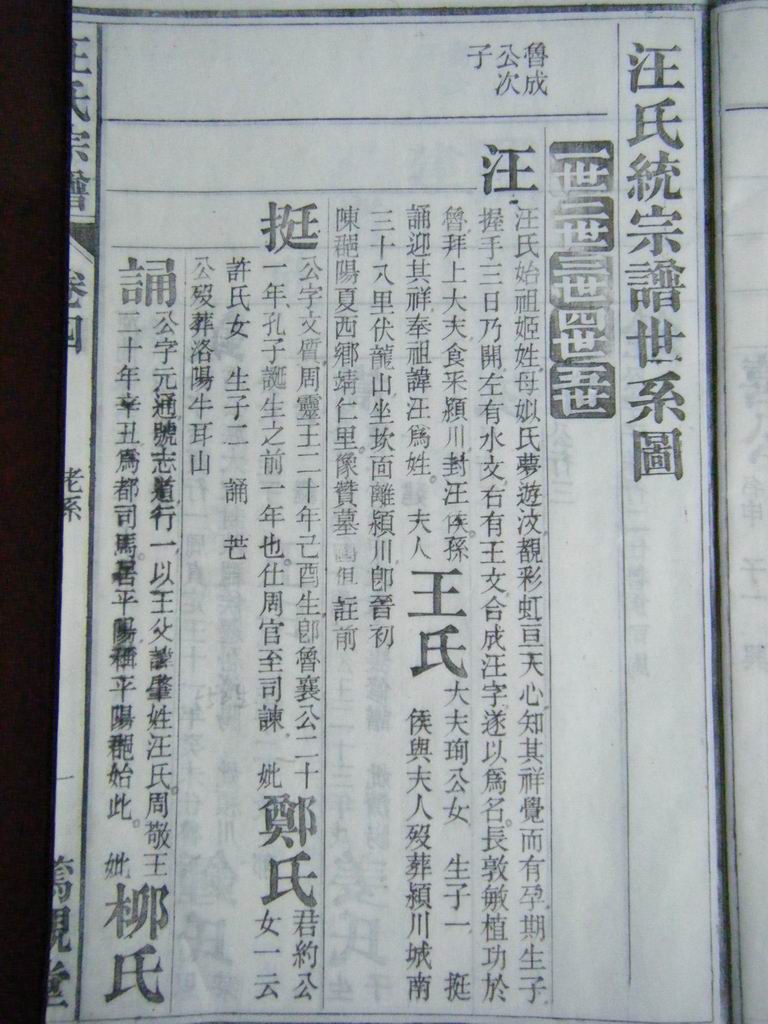 汪氏統宗譜世系圖
一世二世三世四世五世
魯成
公次
子
汪
汪氏始祖姬姓母姒氏夢遊汶覩彩虹亘天心知其祥覺而有孕期生子
握手三日乃開左有水文右有王文合成汪字遂以爲名長敦敏植功於
魯拜上大夫食采潁川封汪侯孫
誦迎其祥奉祖諱汪爲姓 夫人
王氏
大夫珣公女 生子一 挺
侯與夫人歿葬潁川城南
三十八里伏龍山坐坎面離潁川卽晉初
陳郡陽夏西鄉靖仁里像贊墓圖俱註前
挺
公字文質周靈王二十年己酉生卽魯襄公二十
一年孔子誕生之前一年也仕周官至司諫 妣
鄭氏
君約公
女一云
許氏女 生子二 誦 芒
公歿葬洛陽牛耳山
誦
公字元通號志道行一以王父諱肇姓汪氏周敬王
二十年辛丑爲都司馬居平陽稱平陽郡始此 妣
柳氏
汪氏宗譜 卷四 老系 一